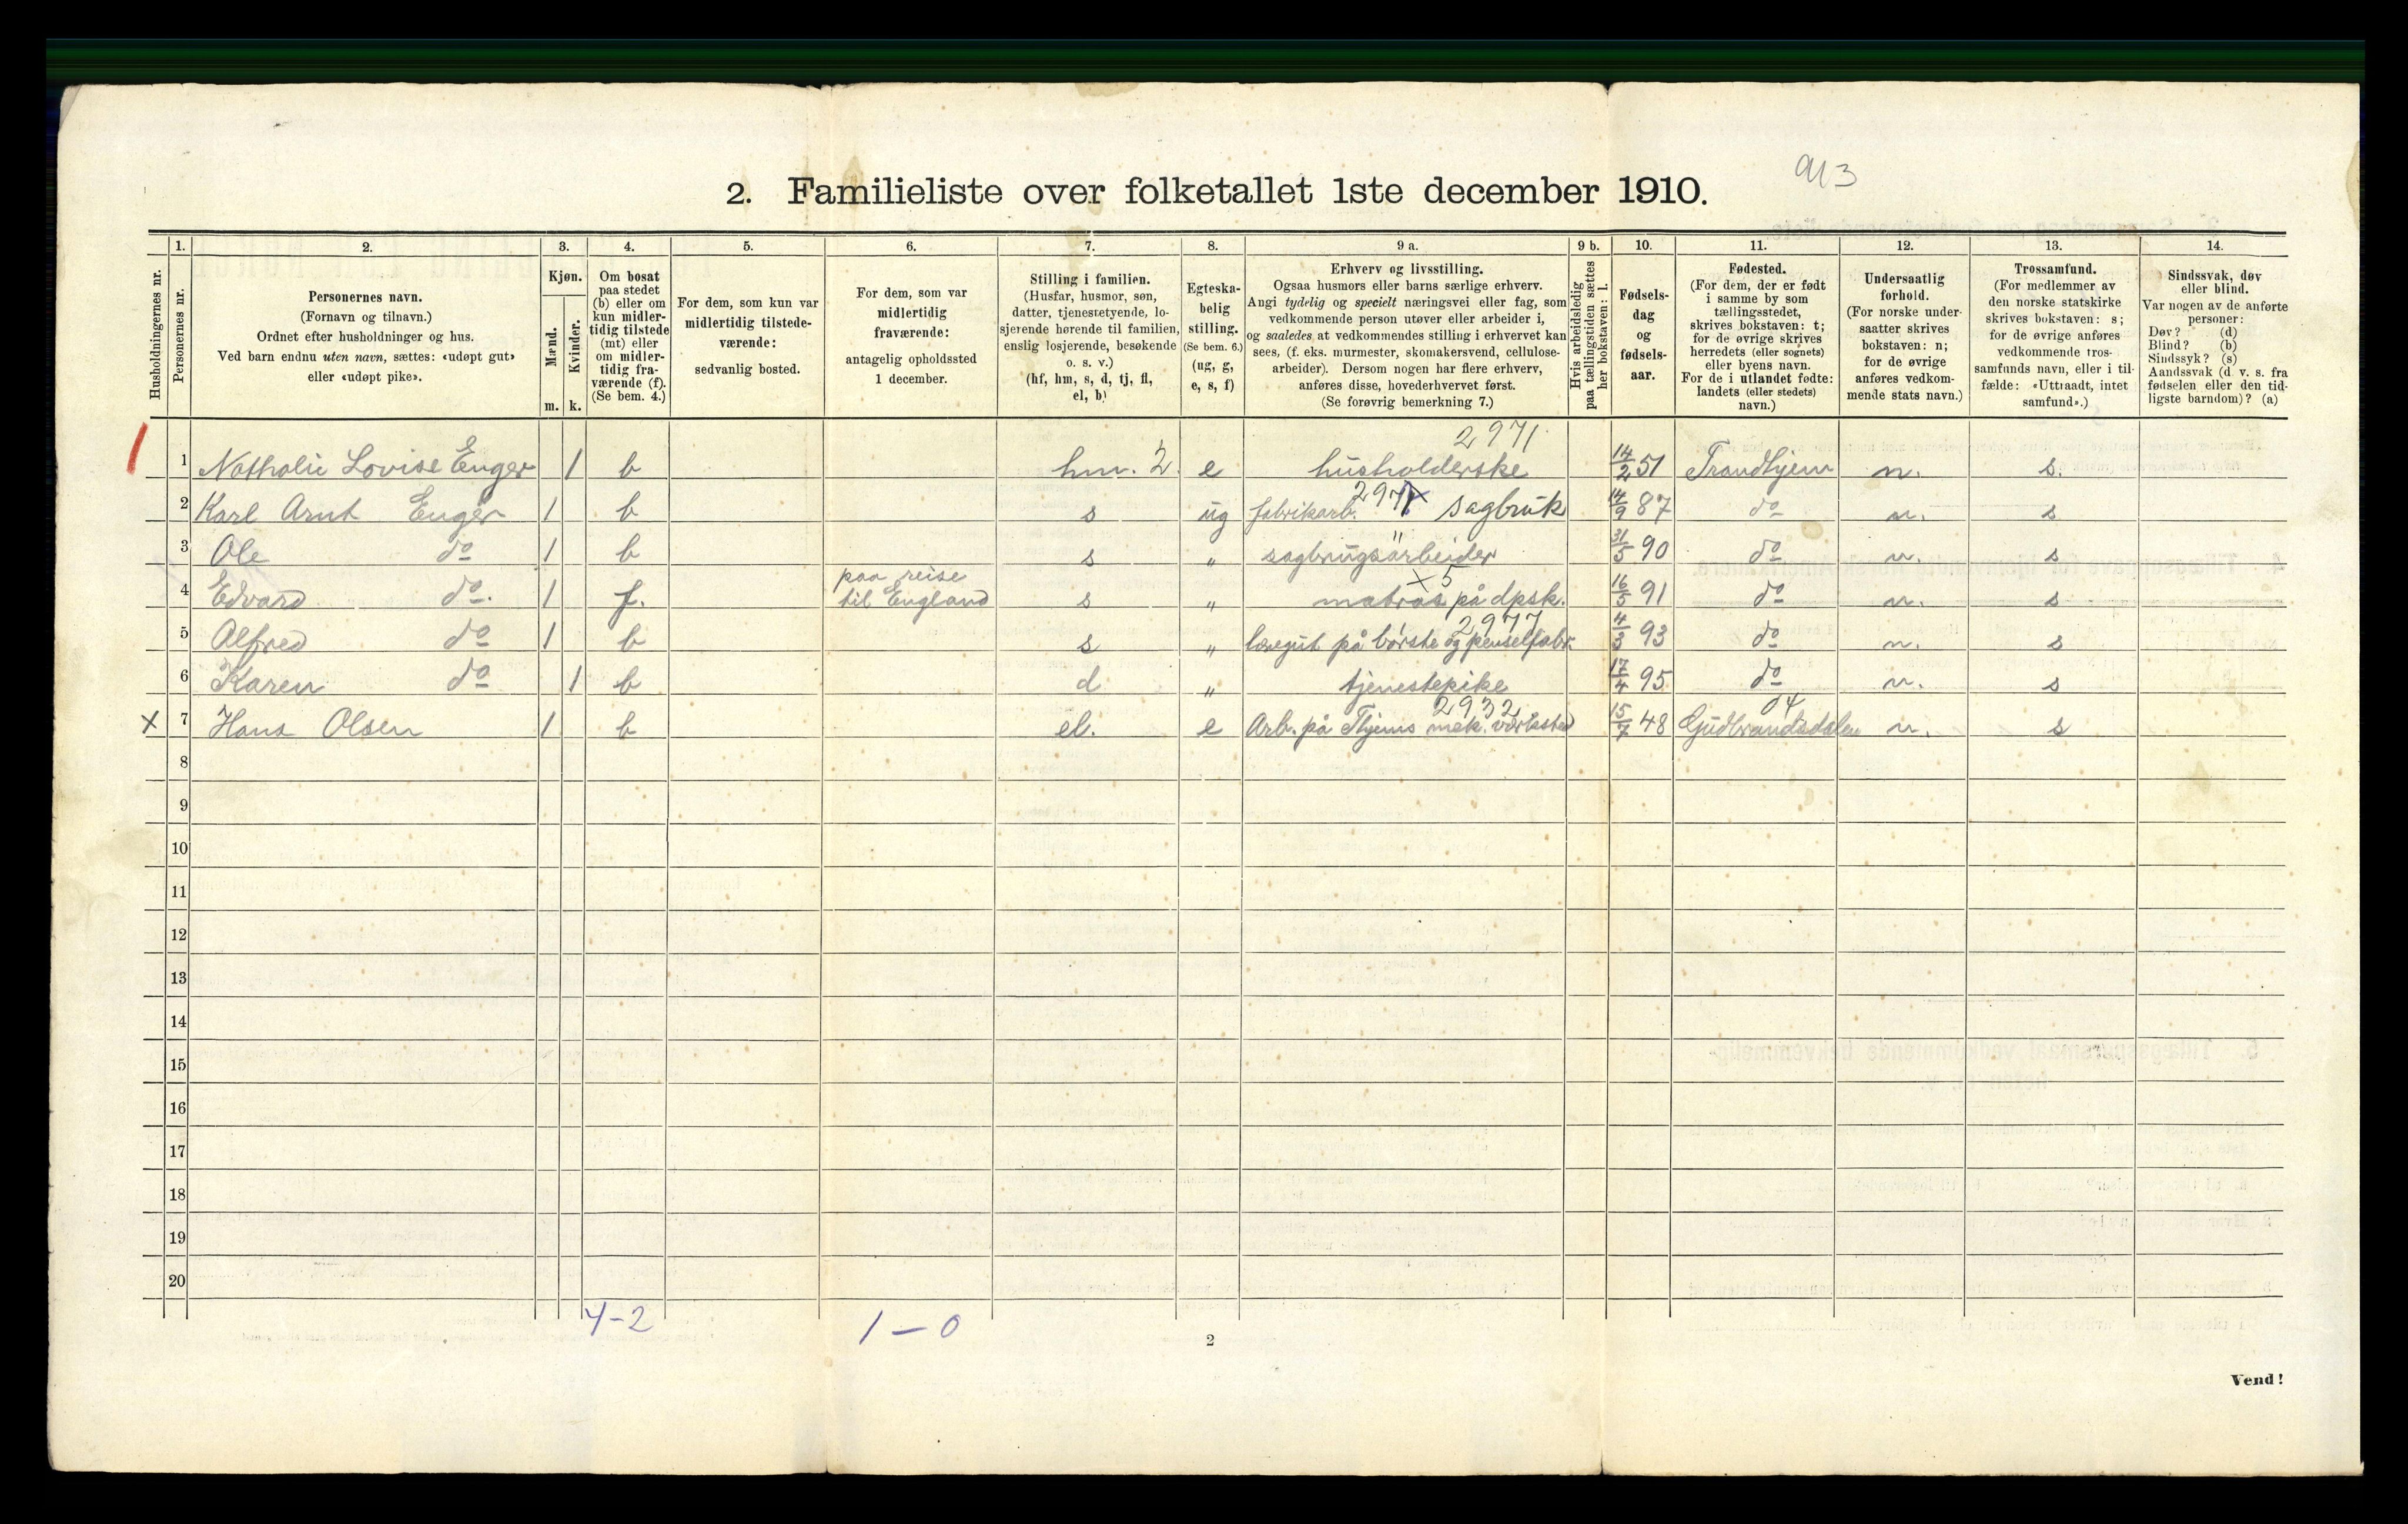 2. Familieliste over folketallet 1ste december 1910.
913
Husholdningernes nr.
1.
Personernes nr.
2.
Personernes navn.
(Fornavn og tilnavn.)
Ordnet efter husholdninger og hus.
Ved barn endnu uten navn, sættes: «udøpt gut»
eller «udøpt pike».
3.
Kjøn.
Mænd.
Kvinder.
m. k.
4.
Om bosat
paa stedet
(b) eller om
kun midler-
tidig tilstede
(mt) eller
om midler-
tidig fra-
værende (f).
(Se bem. 4.)
5.
For dem, som kun var
midlertidig tilstede-
værende:
sedvanlig bosted.
6.
For dem, som var
midlertidig
fraværende:
antagelig opholdssted
1 december.
7.
Stilling i familien.
(Husfar, husmor, søn,
datter, tjenestetyende, lo-
sjerende hørende til familien,
enslig losjerende, besøkende
o. s. v.)
(hf, hm, s, d, tj, fl,
el, b)
8.
Egteska-
belig
stilling.
(Se bem. 6.)
(ug, g,
e, s, f)
9 a.
Erhverv og livsstilling.
Ogsaa husmors eller barns særlige erhverv.
Angi tydelig og specielt næringsvei eller fag, som
vedkommende person utøver eller arbeider i,
og saaledes at vedkommendes stilling i erhvervet kan
sees, (f. eks. murmester, skomakersvend, cellulose-
arbeider). Dersom nogen har flere erhverv,
anføres disse, hovederhvervet først.
(Se forøvrig bemerkning 7.)
9 b.
Hvis arbeidsledig
paa tællingstiden sættes
her bokstaven: l.
10.
Fødsels-
dag
og
fødsels-
aar.
11.
Fødested.
(For dem, der er født
i samme by som
tællingsstedet,
skrives bokstaven: t;
for de øvrige skrives
herredets (eller sognets)
eller byens navn.
For de i utlandet fødte:
landets (eller stedets)
navn.)
12.
Undersaatlig
forhold.
(For norske under-
saatter skrives
bokstaven: n;
for de øvrige
anføres vedkom-
mende stats navn.)
13.
Trossamfund.
(For medlemmer av
den norske statskirke
skrives bokstaven: s;
for de øvrige anføres
vedkommende tros-
samfunds navn, eller i til-
fælde: «Uttraadt, intet
samfund».)
14.
Sindssvak, døv
eller blind.
Var nogen av de anførte
personer:
Døv? (d)
Blind? (b)
Sindssyk? (s)
Aandssvak (d. v. s. fra
fødselen eller den tid-
ligste barndom)? (a)
2971
1 Nathalie Lovise Enger 1 b hm. 2. e husholderske 14/2 51 Trondhjem n. s.
2 Karl Arnt Enger 1 b s ug fabrikarb. sagbruk 14/9 87 do n. s
3 Ole do 1 b s " sagbrugsarbeider 31/5 90 do n. s
paa reise
x 5
4 Edvard do. 1 f. til England s " matros på dpsk. 16/5 91 do n. s
2977
5 Alfred do 1 b s " læregut på børste og penselfabr. 4/3 93 do n. s
6 Karen do 1 b d " tjenestepike 17/4 95 do n. s
2932 04
x 7 Hans Olsen 1 b el. e Arb. på Thjems mek. værksted 15/7 48 Gudbrandsdalen n. s
8
9
10
11
12
13
14
15
16
17
18
19
20
4-2 1-0
2
Vend!